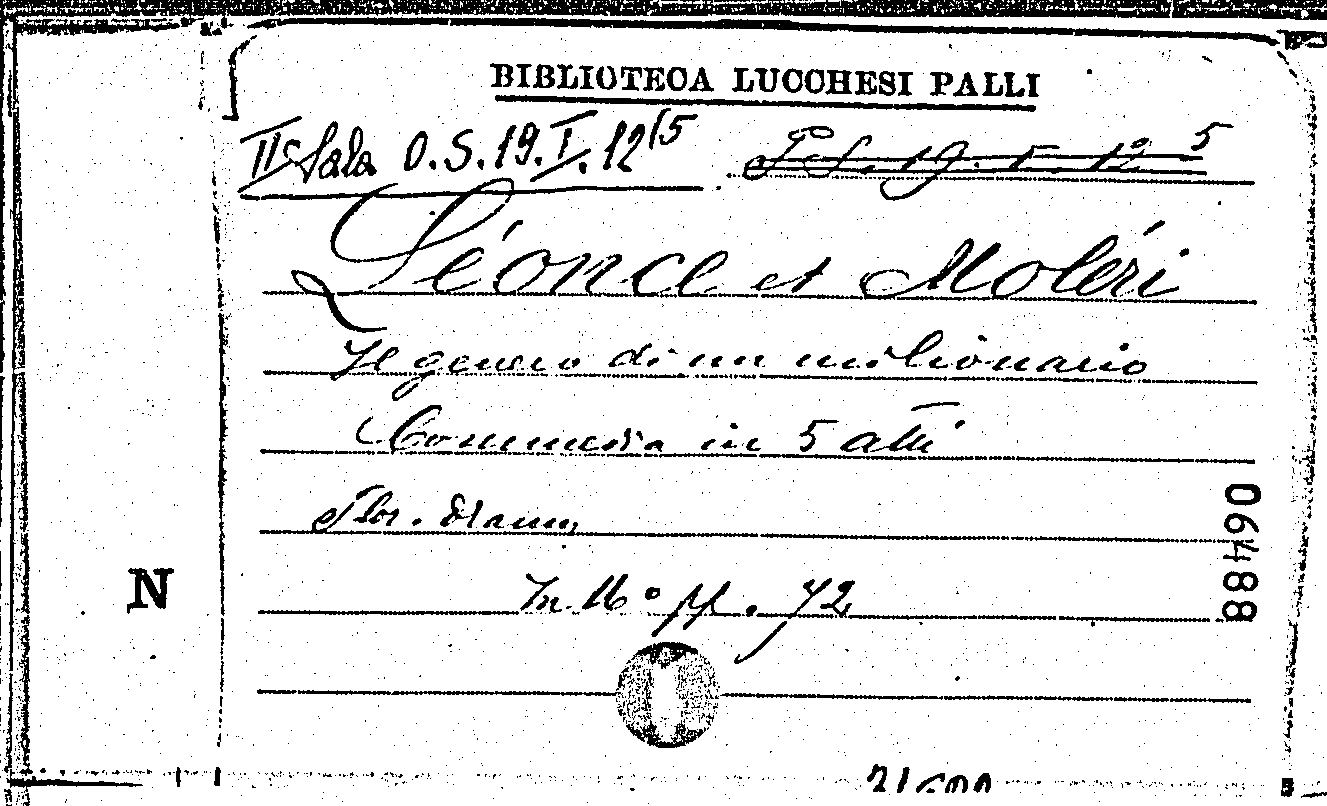 BIBLIOTECA LUCCHESI PALLI
IIª Sala O.S.19.I.12(5 P.S. 19. I. 12 5
Léonce et Moléri
Il genero di un milionario
Commedia in 5 atti
Flor. dramm.
In 16° pp. 72
06488
N